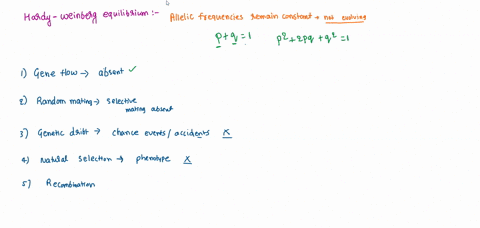 Hardy-Weinberg equilibrium :- Allelic frequencies remain constant → not evolving
p+q=1 p²+2pq+q²=1
1) Gene flow → absent ✓
2) Random mating → selective
mating absent
3) Genetic drift → chance events/accidents X
4) Natural selection → phenotype X
5) Recombination